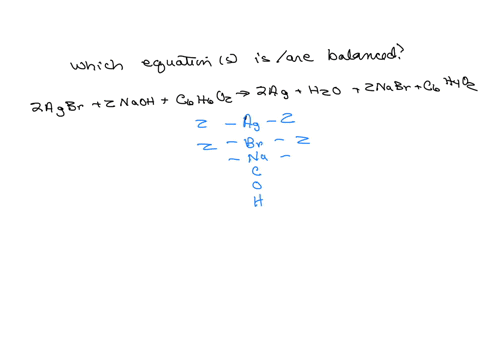 which equation (s) is /are balanced?
2AgBr + 2 NaOH + C6H6O2 → 2Ag + H2O + 2NaBr + C6 H4O2
2 - Ag - 2
2 - Br - 2
- Na -
C
O
H